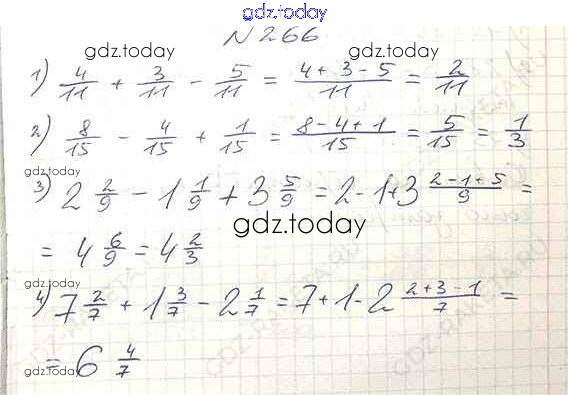 gdz.today
N 266
gdz.today gdz.today
1) 4/11 + 3/11 - 5/11 = (4+3-5)/11 = 2/11
2) 8/15 - 4/15 + 1/15 = (8-4+1)/15 = 5/15 = 1/3
gdz.today gdz.today
3) 2 2/9 - 1 1/9 + 3 5/9 = 2-1+3 (2-1+5)/9 =
gdz.today
= 4 6/9 = 4 2/3
gdz.today gdz.today
4) 7 2/7 + 1 3/7 - 2 1/7 = 7+1-2 (2+3-1)/7 =
= 6 4/7
gdz.today gdz.today